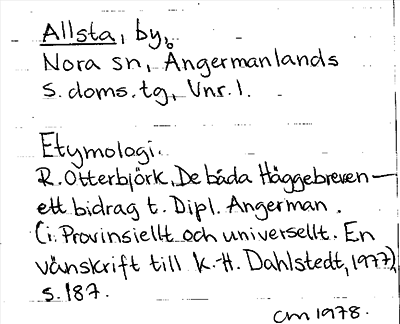 Allsta, by,
Nora sn, Ångermanlands
s. doms. tg, Vnr. 1.
Etymologi.
R. Otterbjörk, De båda Häggebreven —
ett bidrag t. Dipl. Angerman.
(i. Provinsiellt och universellt. En
vänskrift till K.-H. Dahlstedt, 1977),
s. 187.
cm 1978.